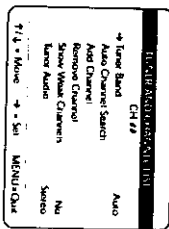 TUNER AND CHANNEL LIST
CH ##
→ Tuner Band Auto
Auto Channel Search
Add Channel
Remove Channel
Show Weak Channels No
Tuner Audio Stereo
↑/↓ = Move → = Sel MENU=Quit